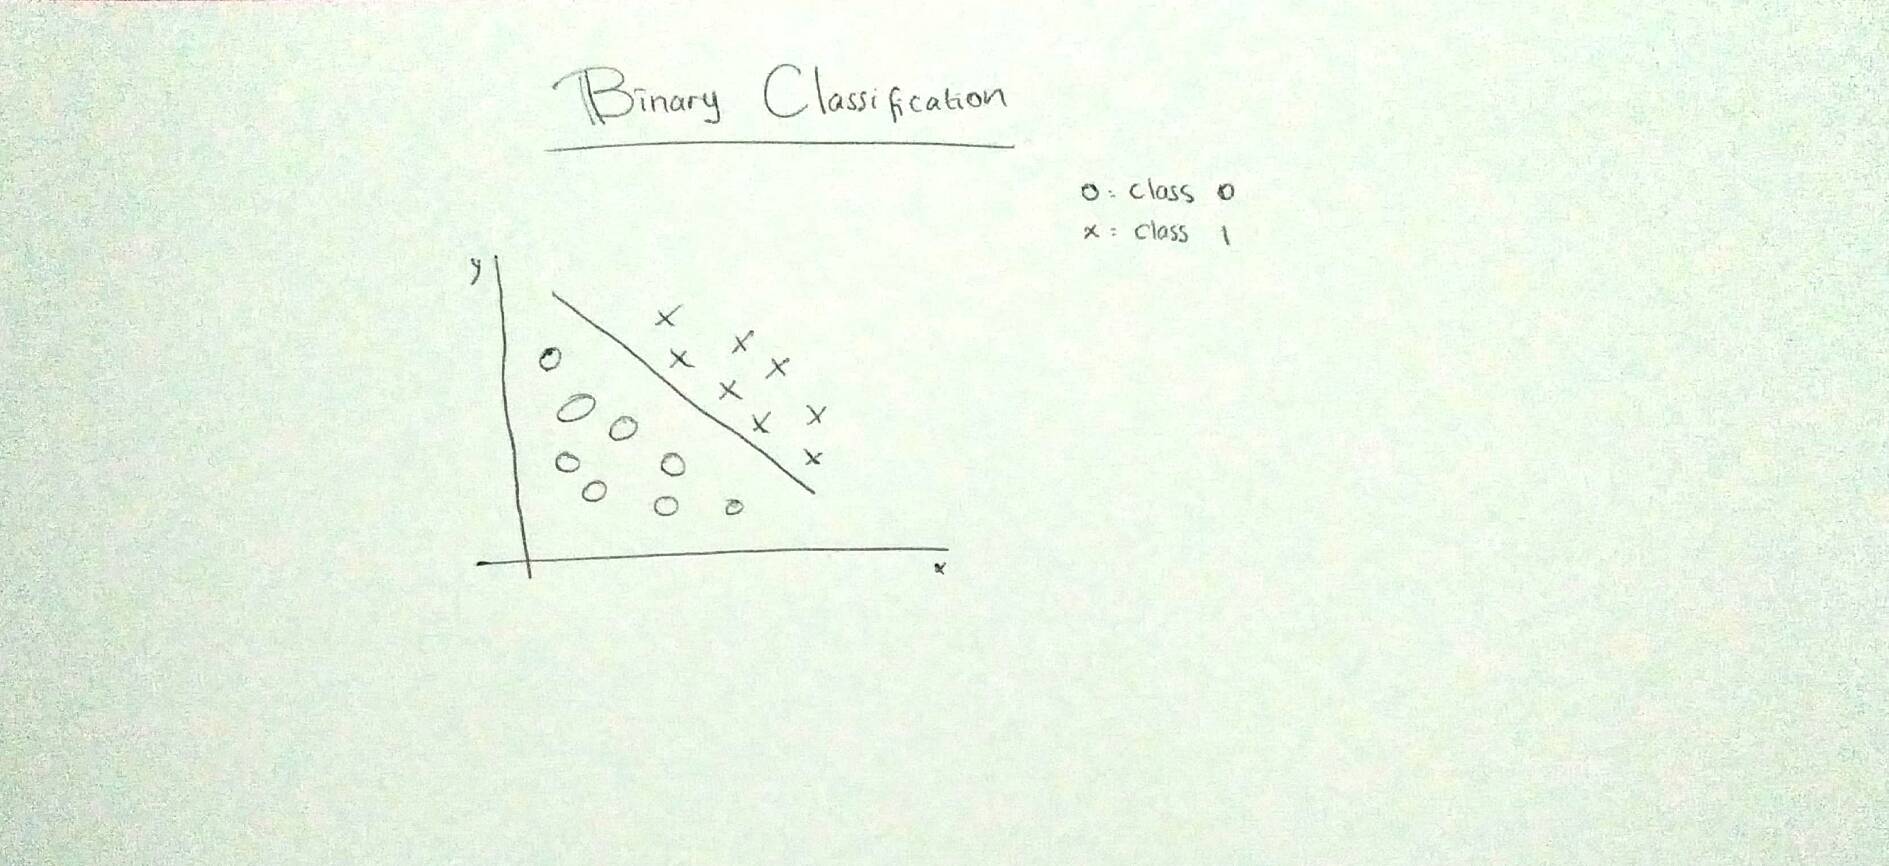 Binary Classification
o: class 0
x: class 1
y
x